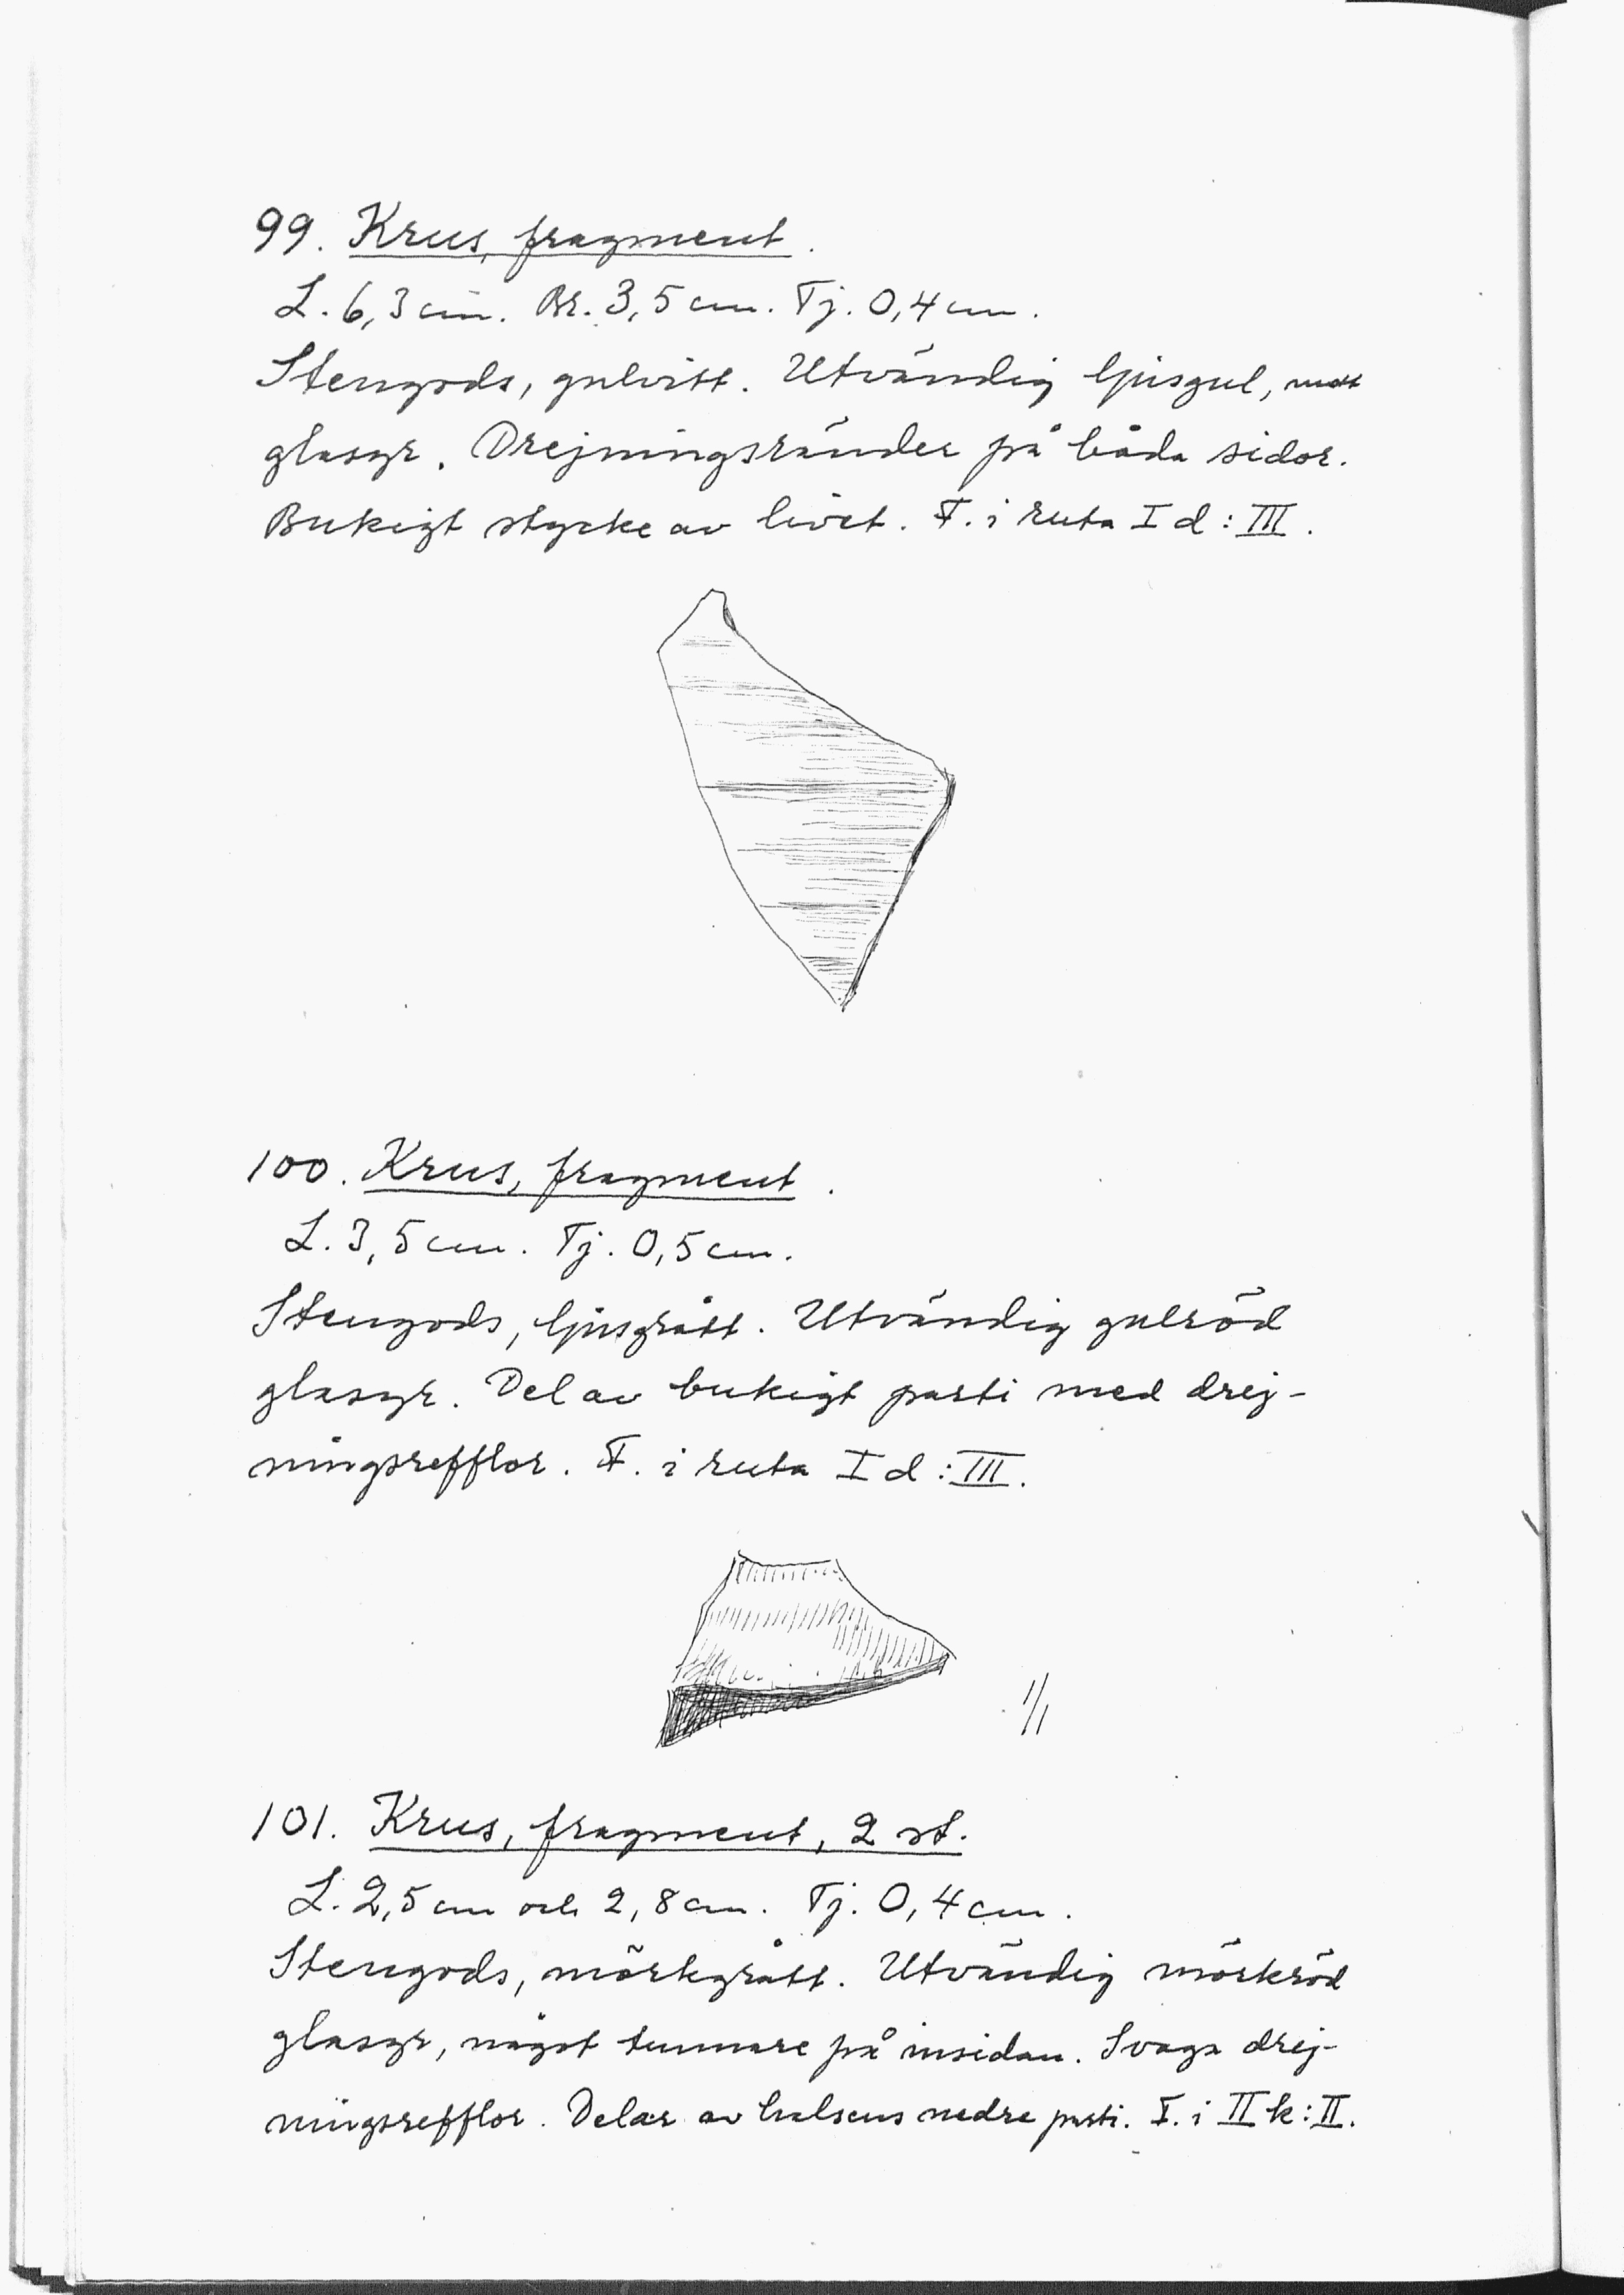 99. Krus, fragment.
L. 6,3 cm. Br. 3,5 cm. Tj. 0,4 cm.
Stengods, gulvitt. Utvändig ljusgul, matt
glasyr. Drejningsränder på båda sidor.
Bukigt stycke av livet. F. i ruta I d : III.
100. Krus, fragment.
L. 3,5 cm. Tj. 0,5 cm.
Stengods, ljusgrått. Utvändig gulröd
glasyr. Del av bukigt parti med drej-
ningsrefflor. F. i ruta I d : III.
1/1
101. Krus, fragment, 2 st.
L. 2,5 cm och 2,8 cm. Tj. 0,4 cm.
Stengods, mörkgrått. Utvändig mörkröd
glasyr, något tunnare på insidan. Svaga drej-
ningsrefflor. Delar av halsens nedre parti. F. i II k : II.